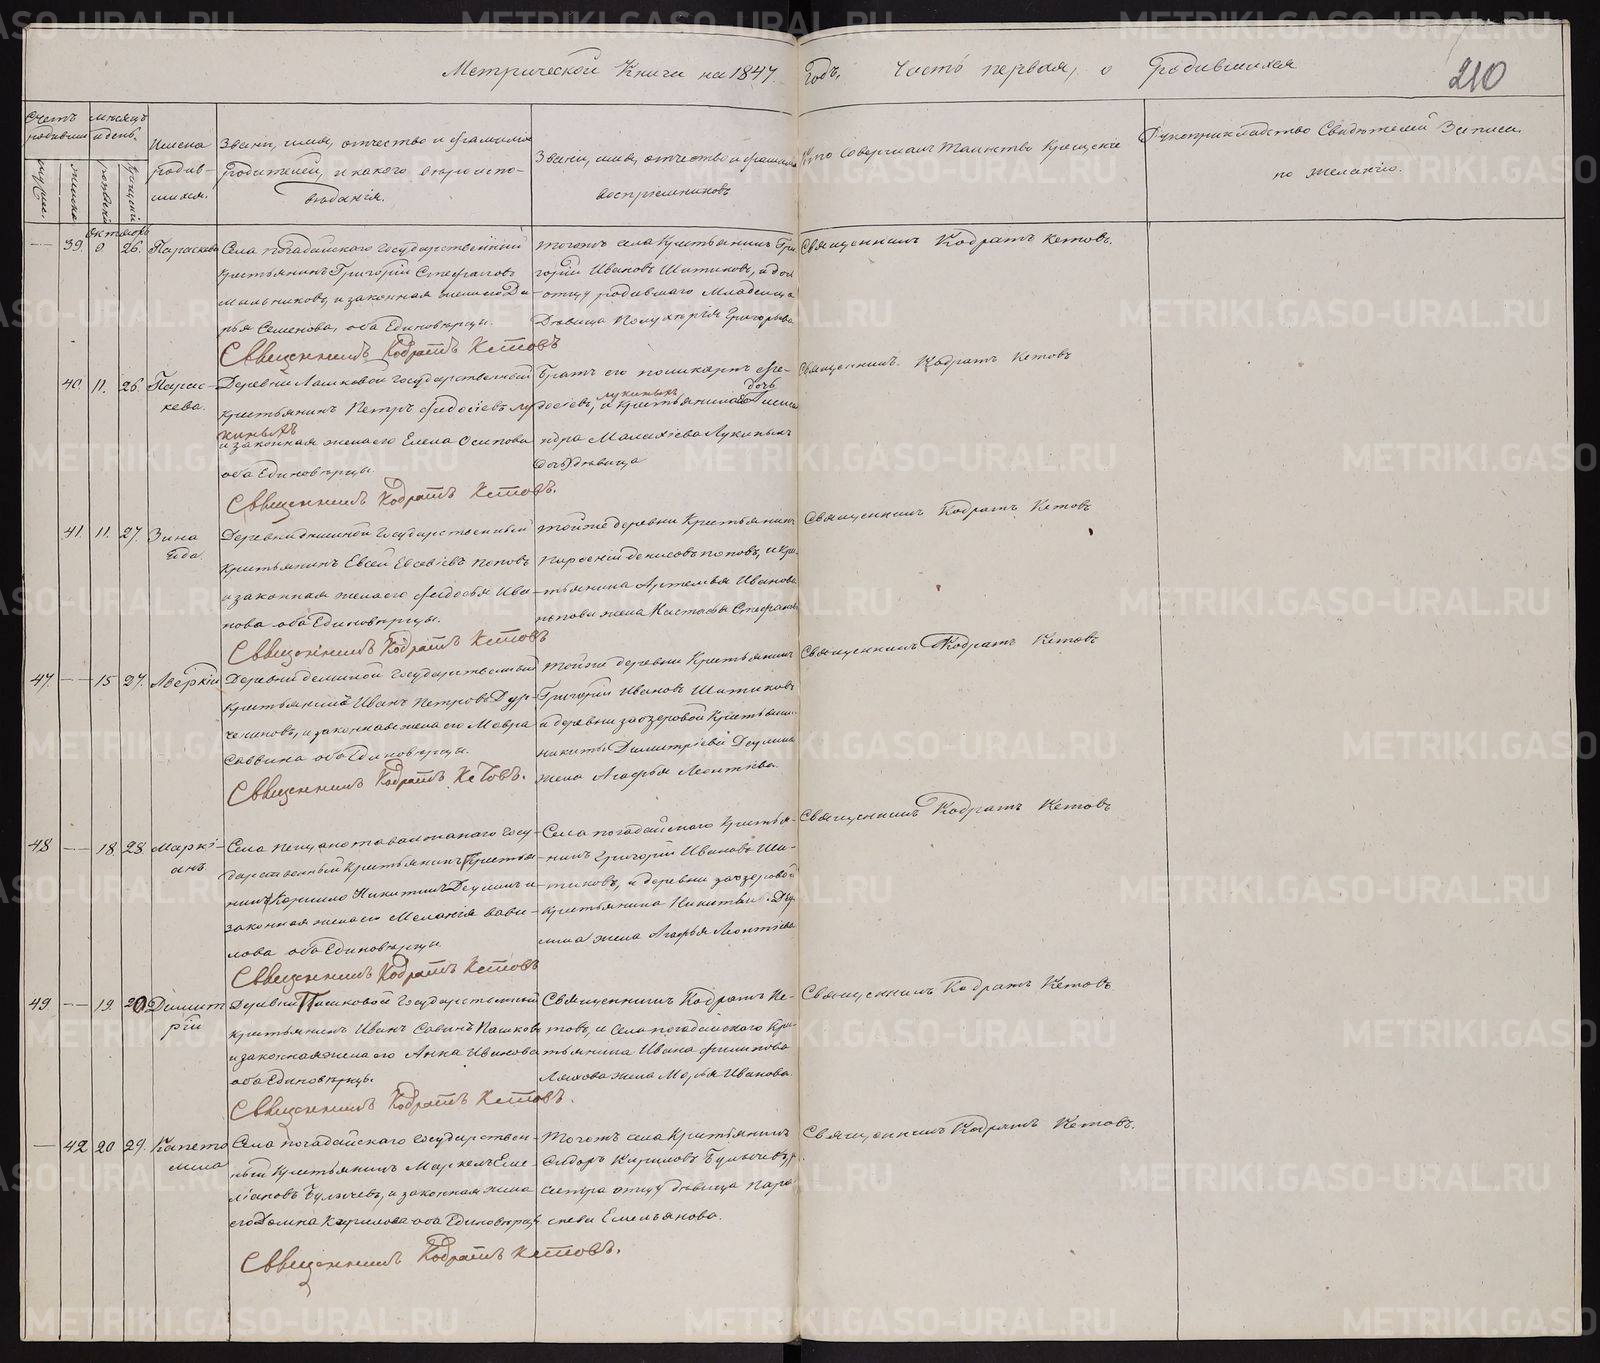 Метрической Книги на 1847 годъ, Часть первая, о Родившихся
210
Счетъ родившихся
Мѣсяцъ и день
Имена родившихся.
Званіе, имя, отчество и фамилія
Родителей, и какого вѣроиспо-
вѣданія.
Званіе, имя, отчество и фамилія
воспріемниковъ
Кто совершалъ таинство Крещенія
Рукоприкладство Свидѣтелей Записи
по желанію.
Октябрь
39. 9 26. Параскева
Села погадайскаго государственный
крестьянинъ Григорій Стефановъ
мыльниковъ, и законная жена его Да-
рья Семенова, оба Единовѣрцы.
Священникъ Кодратъ Кетовъ
тогожъ села Крестьянинъ Гри
горій Ивановъ Шатиковъ, и дочь
отцу родившаго Младенца
Дѣвица Полухерія Григорьева
Священникъ Кодратъ Кетовъ.
40. 11. 26. Парас-
кева.
Деревни Лашковой государственный
крестьянинъ Петръ Федосіевъ лу
киныхъ
и законная жена его Елена Осипова
оба Единовѣрцы.
Священникъ Кодратъ Кетовъ.
Братъ его поликарпъ Фе-
досіевъ, лукиныхъ и крестьянина дочь
Малахіева Лукиныхъ
дочь дѣвица
Священникъ Кодратъ Кетовъ
41. 11. 27. Зина
ида.
Государственный
Крестьянинъ Евсей Евсевіевъ поповъ
и законная жена его Федосья Ива-
нова оба Единовѣрцы.
Священникъ Кодратъ Кетовъ
тойже деревни Крестьянинъ
денисовъ поповъ, и кре-
стьянина Артемья Иванова
попова жена Настасья Стефанова
Священникъ Кодратъ Кетовъ
47. 15 27. Аверкій
Деревни деминой Государственный
крестьянинъ Иванъ Петровъ
и законная жена его Мавра
Саввина оба Единовѣрцы.
Священникъ Кодратъ Кетовъ.
тойже деревни Крестьянинъ
Григорій Ивановъ Шатиковъ
и деревни заозеровой Крестьянина
никиты Димитріева Деулина
жена Агафья Леонтьева.
Священникъ Кодратъ Кетовъ
48 18 28 Маркі-
анъ.
Села пещанотаволжанаго Госу-
дарственный Крестьянинъ
Никитинъ Деулинъ и
законная жена его Меланія вави-
лова оба Единовѣрцы
Священникъ Кодратъ Кетовъ
Села погадайскаго Крестья-
нинъ Григорій Ивановъ Ша-
тиковъ, и деревни заозеровой
крестьянина Никиты Деу-
лина жена Агафья Леонтіева
Священникъ Кодратъ Кетовъ
49. 19. 20 Димит
рій
Деревни Пашковой Государственный
крестьянинъ Иванъ Савинъ Пашковъ
и законная жена его Анна Иванова
оба Единовѣрцы.
Священникъ Кодратъ Кетовъ.
Священникъ Кодратъ Ке-
товъ, и села погадайскаго Кре-
стьянина Ивана филипова
Ляхова жена Марья Иванова.
Священникъ Кодратъ Кетовъ
42 20 29. Капето
лина
Села погадайскаго государствен-
ный Крестьянинъ Маркелъ Еме-
ліановъ Булычевъ, и законная жена
его Домна Кирилова оба Единовѣрцы
Священникъ Кодратъ Кетовъ.
Тогожъ села Крестьянинъ
Сидоръ Кириловъ Булычевъ,
сестра отцу дѣвица пара
скева Емельянова.
Священникъ Кодратъ Кетовъ.
METRIKI.GASO-URAL.RU